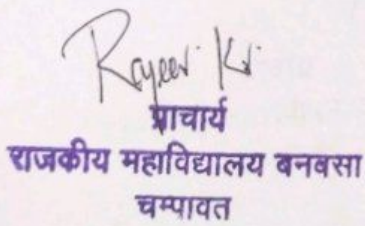 Rajeev Kr.
प्राचार्य
राजकीय महाविद्यालय बनबसा
चम्पावत